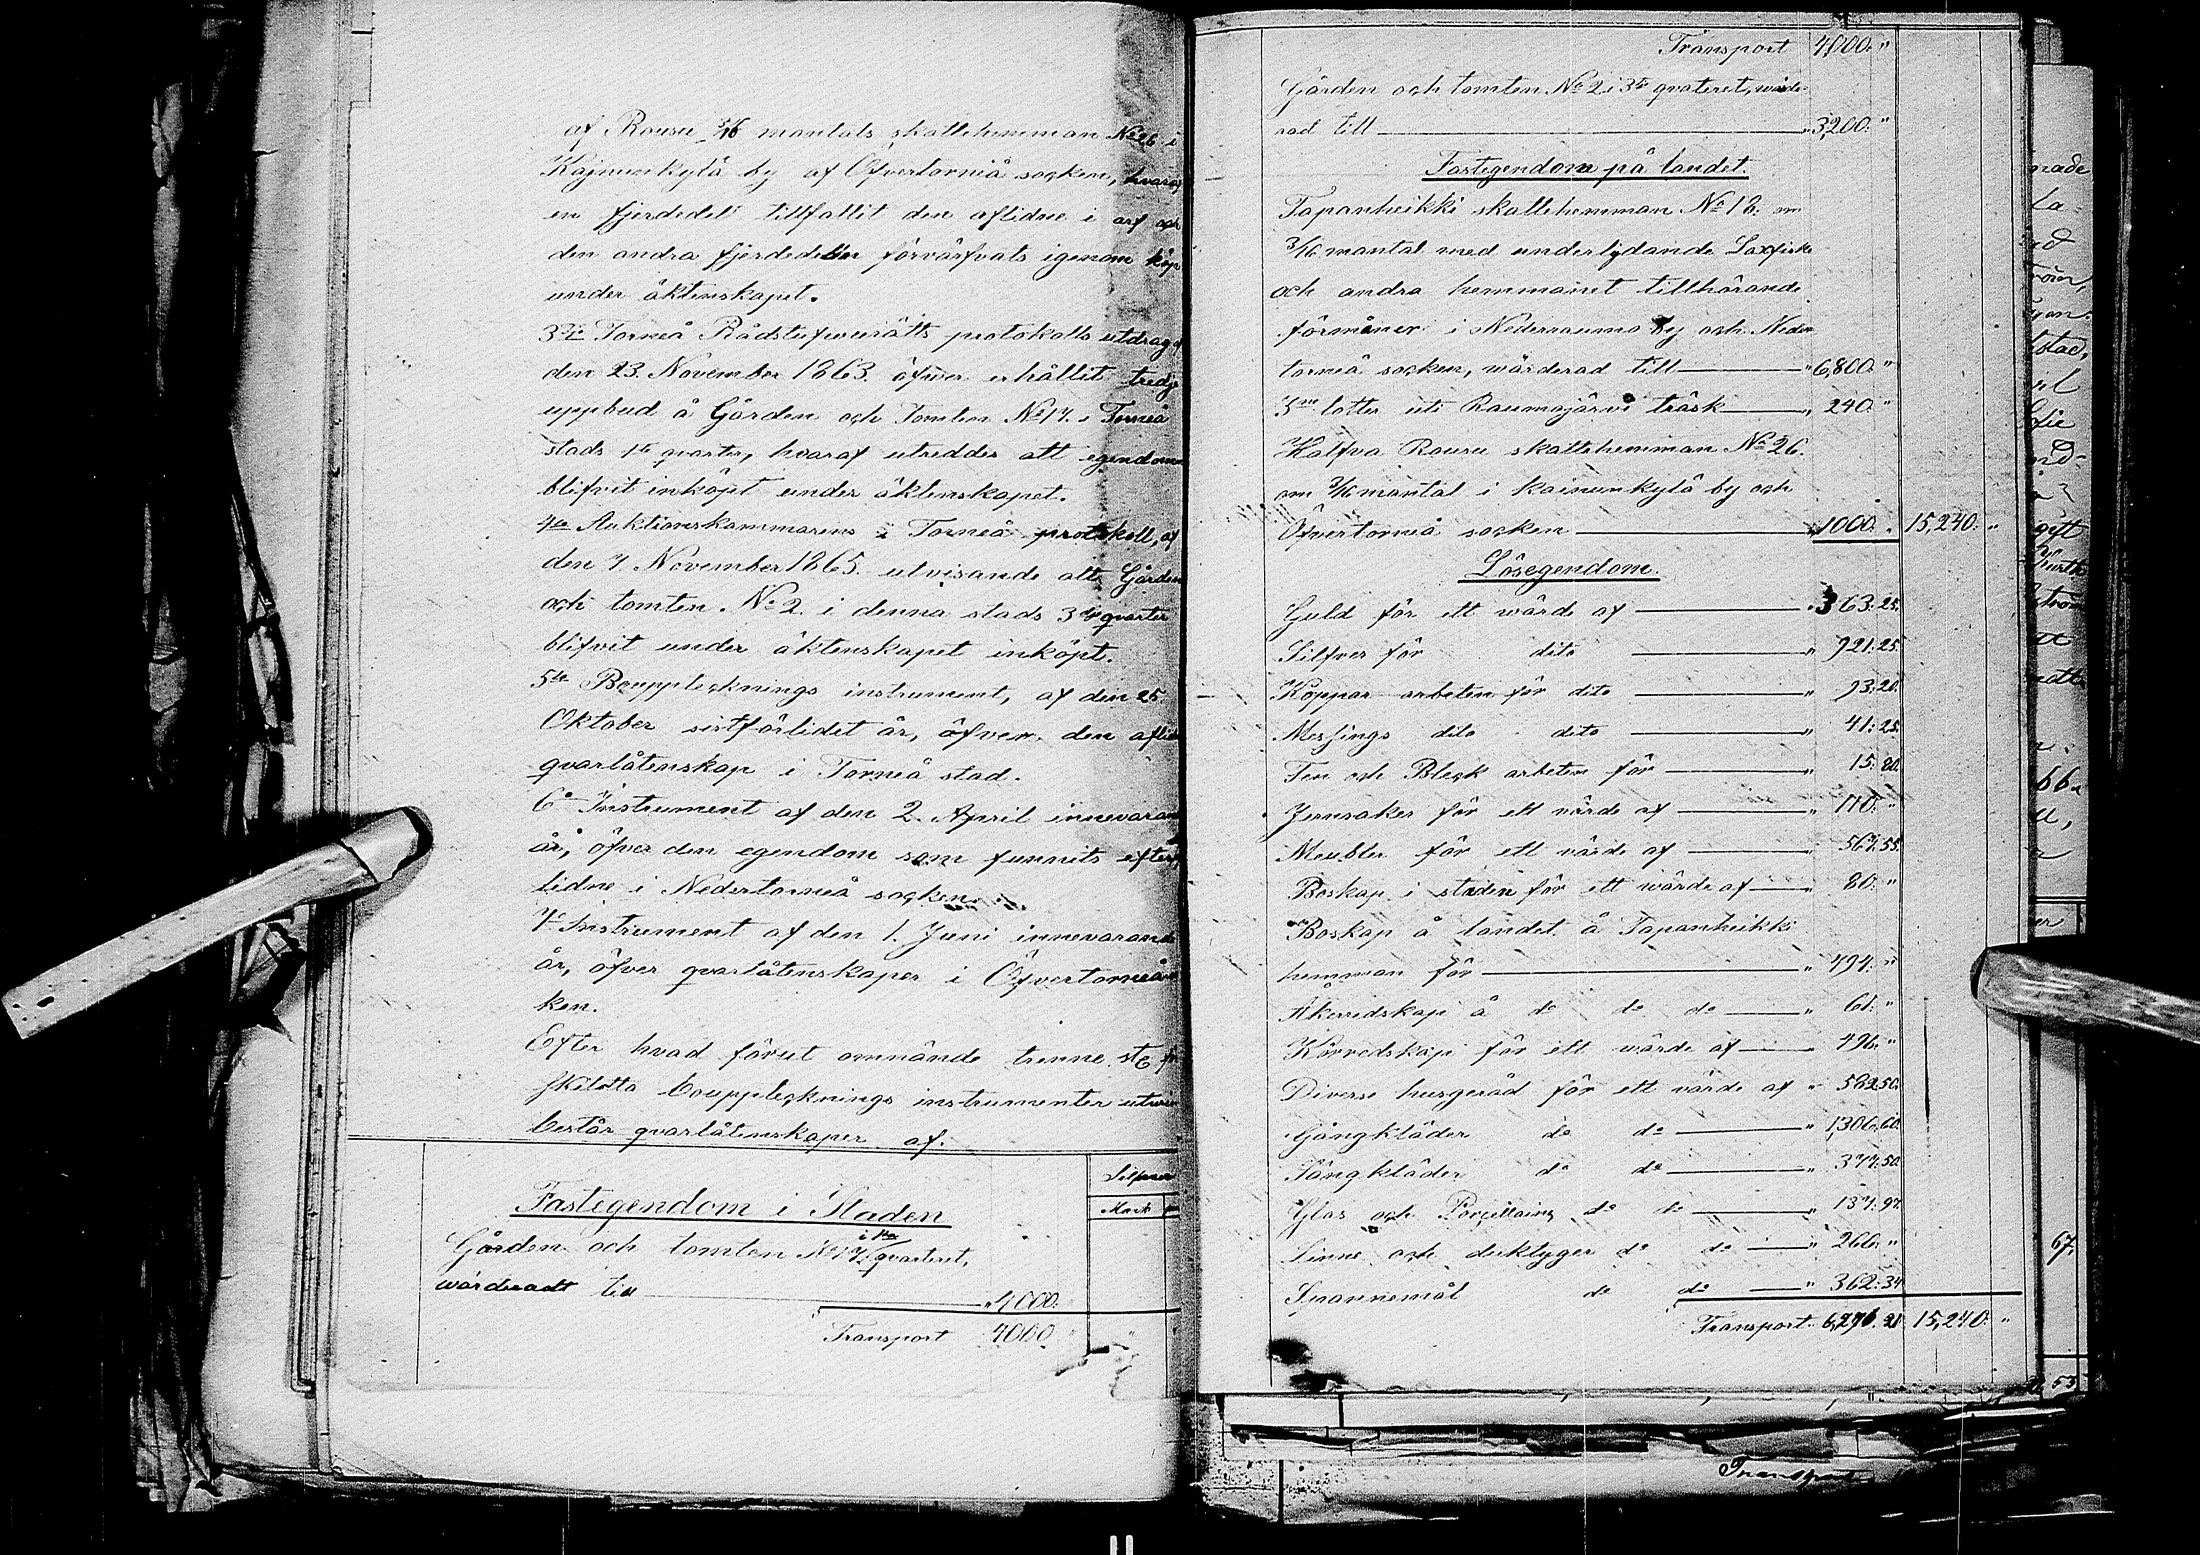 af Rousu 3/16 mantals skattehemman No 26 i
Kajnunkylä by af Öfvertorneå socken, hvaraf
en fjerdedel tillfallit den aflidne i arf och
den andra fjerdedelen förvärfvats igenom köp
under äktenskapet.
3die Torneå Rådstufvurätts protokolls utdrag af
den 23. November 1863. öfver erhållit tredje
uppbud å Gården och Tomten No 17. i Torneå
stads 1te qvarter, hvaraf utreddes att egendomen
blifvit inköpt under äktenskapet.
4de Auktionskammarens i Torneå protokoll, af
den 7 November 1865. utvisande att Gården
och tomten No 2. i denna stads 3dje qvarter
blifvit under äktenskapet inköpt.
5te Boupptecknings instrument, af den 25.
Oktober sistförlidet år, öfver den aflidnes
qvarlåtenskap i Torneå stad.
6o Instrument af den 2. April innevarande
år, öfver den egendom som funnits efter
lidne i Nedertorneå socken.
7o Instrument af den 1. Juni innevarande
år, öfver qvarlåtenskapen i Öfvertorneå
ken.
Efter hvad förut omnände trenne ste
skilotta boupptecknings instrumenter
består qvarlåtenskapen af.
Silfver
Mark
Fastegendom i Staden
i 1ta
Gården och tomten No 17 qvarteret,
wärderadt till 4000.
Transport 4000
Transport 4000. "
Gården och tomten No 2 i 3te qvarteret, wärde-
rad till " 3,200. "
Fastegendom på landet.
Tapanheikki skattehemman No 18. om
3/16 mantal med underlydande Laxfiske
och andra hemmanet tillhörande
förmåner i Nederraumo by och Neder
torneå socken, wärderad till " 6,800. "
3ne lotter uti Raumojärvi träsk " 240. "
Halfva Rousu skattehemman No 26.
om 3/16 mantal i Kainunkylä by och
Öfvertorneå socken " 1000. " 15,240. "
Lösegendom.
Guld för ett wärde af " 363: 25.
Silfver för dito " 921: 25.
Koppar arbeten för dito " 93: 20.
Messings dito dito " 41: 25.
Ten och Bleck arbeten för " 15: 80.
Jernsaker för ett wärde af " 110: "
Meubler för ett wärde af " 567: 55.
Boskap i staden för ett wärde af " 80: "
Boskap å landet å Tapanheikki
hemman för " 494: "
Åkerredskap å do do do " 61: "
Körredskap för ett wärde af " 496. "
Diverse husgeråd för ett wärde af " 582. 50.
Gångkläder do do " 1,306. 60.
Sängkläder do do " 377. 50.
Glas och Porcellaine do do " 137. 97.
Linne och duktyger do do " 266. "
Spannemål do do " 362: 34
Transport 6,276. 21 15,240. "
67.
53
Transport